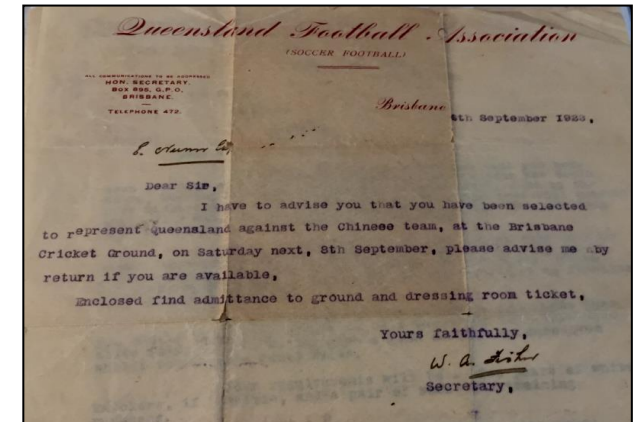 Queensland Football Association
(SOCCER FOOTBALL)
ALL COMMUNICATIONS TO BE ADDRESSED
HON. SECRETARY.
BOX 895, G.P.O,
BRISBANE.
TELEPHONE 472.
Brisbane
6th September 1923,
Dear Sir,
I have to advise you that you have been selected
to represent Queensland against the Chinese team, at the Brisbane
Cricket Ground, on Saturday next, 8th September, please advise me by
return if you are available,
Enclosed find admittance to ground and dressing room ticket,
Yours faithfully,
W. A. Fisher
Secretary,